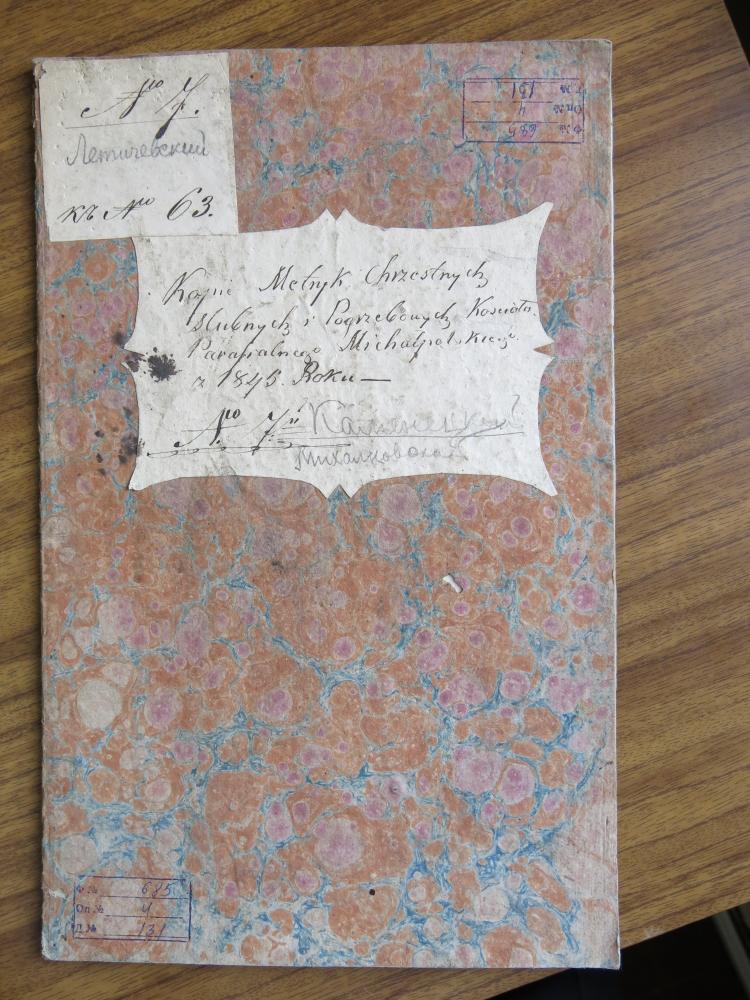 № 7.
Летичевский
къ № 63.
Ф № 685
Оп № 4
Д № 131
Kopii Metryk Chrzestnych
Slubnych i Pogrzebowych Kościoła
Parafialnego Michałpolskiego
z 1845 Roku —
№ 7
Каменецкий
Ф № 685
Оп № 4
Д № 131